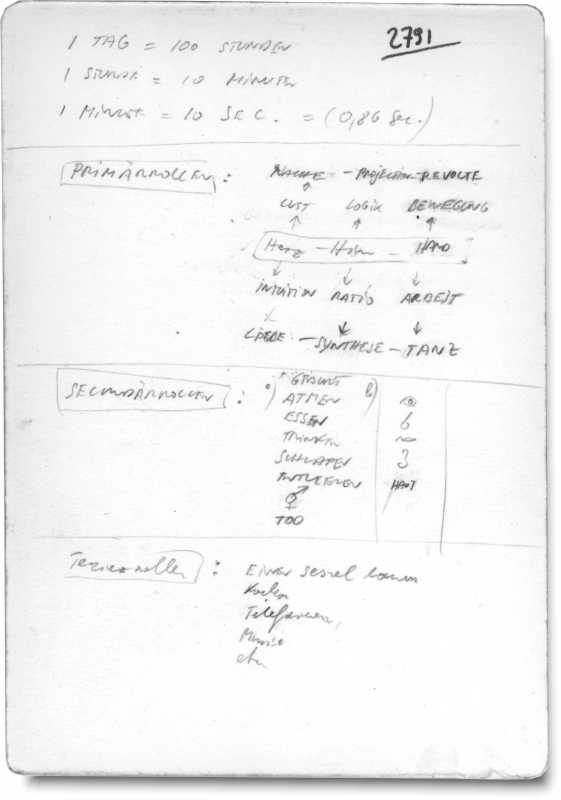 2791
1 TAG = 100 STUNDEN
1 STUNDE = 10 MINUTEN
1 MINUTE = 10 SEC. = (0,86 Sec.)
PRIMÄRROLLEN :
- PROJECTION - REVOLTE
LUST LOGIK BEWEGUNG
Herz - Hirn - HAND
INTUITION RATIO ARBEIT
LIEBE - SYNTHESE - TANZ
SECUNDÄRROLLEN :
a) GEBURT b)
ATMEN
ESSEN
TRINKEN
SCHLAFEN
ENTLEEREN HAUT
⚥
TOD
: EINEN Sessel bauen
Kochen
Telefonieren,
Musik
etc